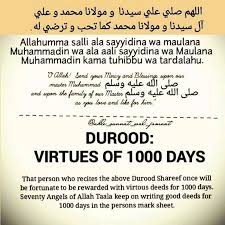 اللهم صلي علي سيدنا و مولانا محمد و علي
آل سيدنا و مولانا محمد كما تحب و ترضي له
Allahumma salli ala sayyidina wa maulana
Muhammadin wa ala aali sayyidina wa Maulana
Muhammadin kama tuhibbu wa tardalahu.
"O Allah! Send your Mercy and Blessings upon our
master Muhammad صلى الله عليه وسلم
and upon the family of our Master صلى الله عليه وسلم
as you love and like for him!"
DUROOD:
VIRTUES OF 1000 DAYS
That person who recites the above Durood Shareef once will
be fortunate to be rewarded with virtous deeds for 1000 days.
Seventy Angels of Allah Taala keep on writing good deeds for
1000 days in the persons mark sheet.